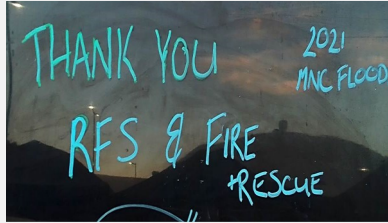 THANK YOU
2021
MNC FLOOD
RFS & FIRE
+RESCUE